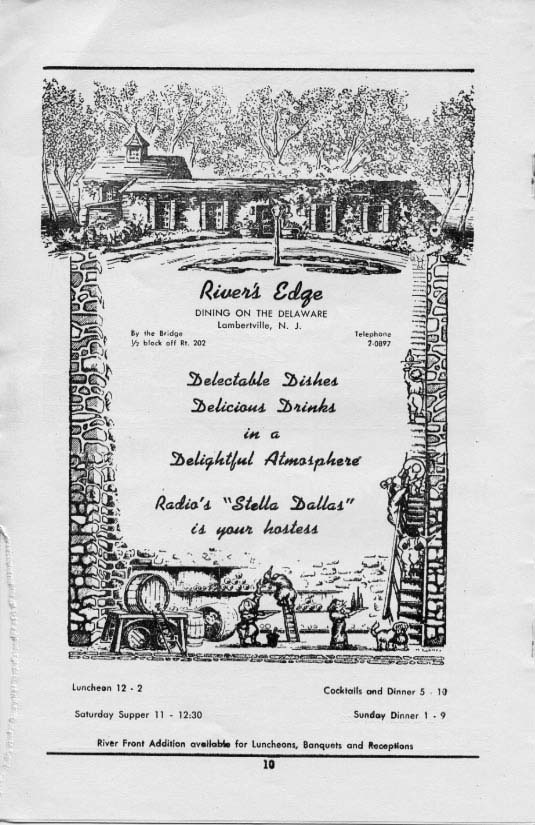 River's Edge
DINING ON THE DELAWARE
Lambertville, N. J.
By the Bridge
½ block off Rt. 202
Telephone
2-0897
Delectable Dishes
Delicious Drinks
in a
Delightful Atmosphere
Radio's "Stella Dallas"
is your hostess
Luncheon 12 - 2
Cocktails and Dinner 5 - 10
Saturday Supper 11 - 12:30
Sunday Dinner 1 - 9
River Front Addition available for Luncheons, Banquets and Receptions
10